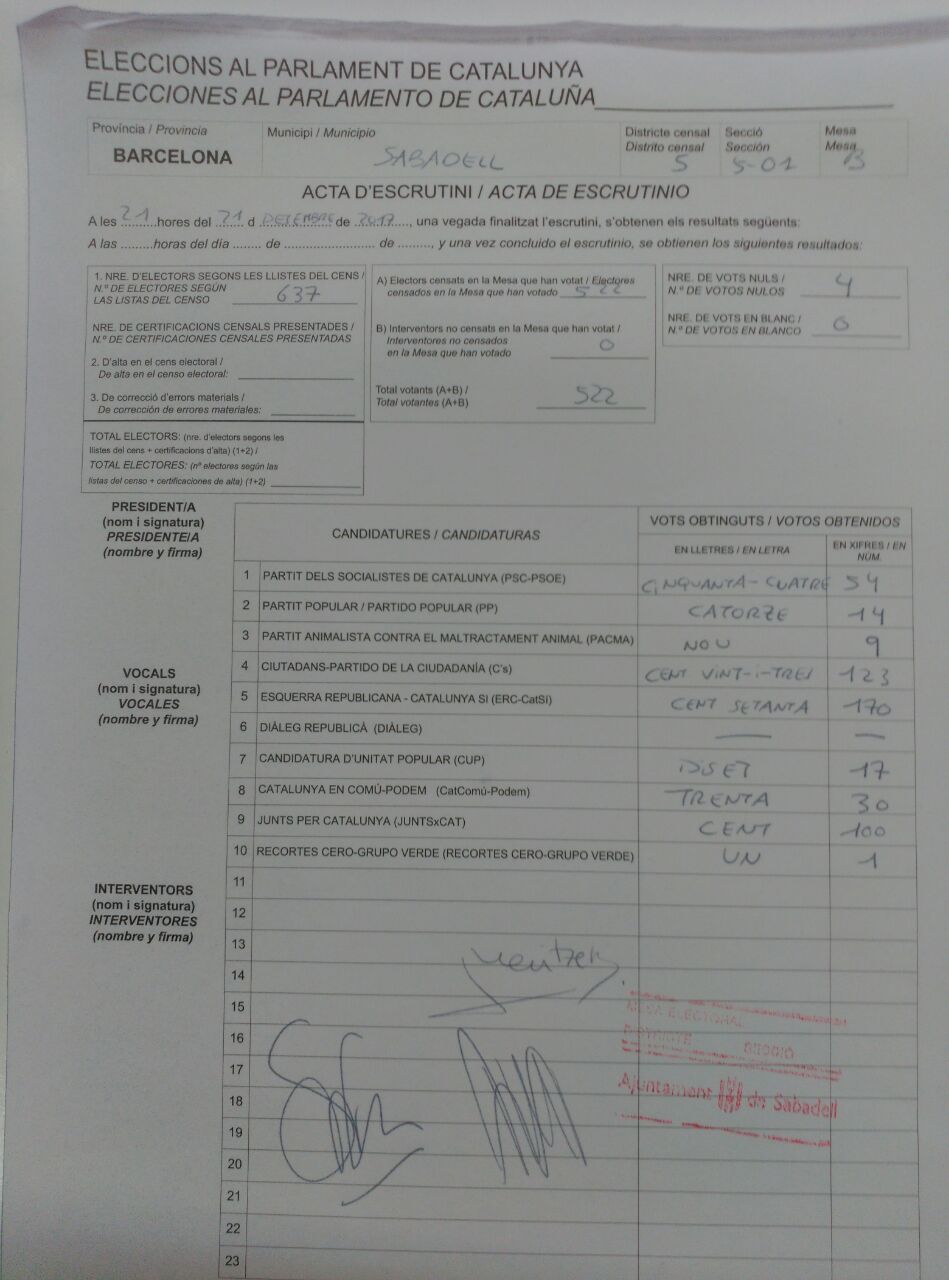 ELECCIONS AL PARLAMENT DE CATALUNYA
ELECCIONES AL PARLAMENTO DE CATALUÑA
Província / Provincia
BARCELONA
Municipi / Municipio
SABADELL
Districte censal
Distrito censal
5
Secció
Sección
5-01
Mesa
Mesa
B
ACTA D'ESCRUTINI / ACTA DE ESCRUTINIO
A les 21 hores del 21 d DESEMBRE de 2017, una vegada finalitzat l'escrutini, s'obtenen els resultats següents:
A las .........horas del día ........ de ........................ de ........., y una vez concluido el escrutinio, se obtienen los siguientes resultados:
1. NRE. D'ELECTORS SEGONS LES LLISTES DEL CENS /
N.º DE ELECTORES SEGÚN
LAS LISTAS DEL CENSO 637
NRE. DE CERTIFICACIONS CENSALS PRESENTADES /
N.º DE CERTIFICACIONES CENSALES PRESENTADAS
2. D'alta en el cens electoral /
De alta en el censo electoral:
3. De correcció d'errors materials /
De corrección de errores materiales:
TOTAL ELECTORS: (nre. d'electors segons les
llistes del cens + certificacions d'alta) (1+2) /
TOTAL ELECTORES: (nº electores según las
listas del censo + certificaciones de alta) (1+2)
A) Electors censats en la Mesa que han votat / Electores
censados en la Mesa que han votado 522
B) Interventors no censats en la Mesa que han votat /
Interventores no censados
en la Mesa que han votado 0
Total votants (A+B) /
Total votantes (A+B) 522
NRE. DE VOTS NULS /
N.º DE VOTOS NULOS 4
NRE. DE VOTS EN BLANC /
N.º DE VOTOS EN BLANCO 0
PRESIDENT/A
(nom i signatura)
PRESIDENTE/A
(nombre y firma)
VOCALS
(nom i signatura)
VOCALES
(nombre y firma)
INTERVENTORS
(nom i signatura)
INTERVENTORES
(nombre y firma)
CANDIDATURES / CANDIDATURAS
VOTS OBTINGUTS / VOTOS OBTENIDOS
EN LLETRES / EN LETRA
EN XIFRES / EN
NÚM.
1 PARTIT DELS SOCIALISTES DE CATALUNYA (PSC-PSOE) CINQUANTA-CUATRE 54
2 PARTIT POPULAR / PARTIDO POPULAR (PP) CATORZE 14
3 PARTIT ANIMALISTA CONTRA EL MALTRACTAMENT ANIMAL (PACMA) NOU 9
4 CIUTADANS-PARTIDO DE LA CIUDADANÍA (C's) CENT VINT-I-TRES 123
5 ESQUERRA REPUBLICANA - CATALUNYA SI (ERC-CatSí) CENT SETANTA 170
6 DIÀLEG REPUBLICÀ (DIÀLEG) — —
7 CANDIDATURA D'UNITAT POPULAR (CUP) DISET 17
8 CATALUNYA EN COMÚ-PODEM (CatComú-Podem) TRENTA 30
9 JUNTS PER CATALUNYA (JUNTSxCAT) CENT 100
10 RECORTES CERO-GRUPO VERDE (RECORTES CERO-GRUPO VERDE) UN 1
11
12
13
14
15
16
17
18
19
20
21
22
23
MESA ELECTORAL
DISTRICTE SECCIÓ
Ajuntament de Sabadell